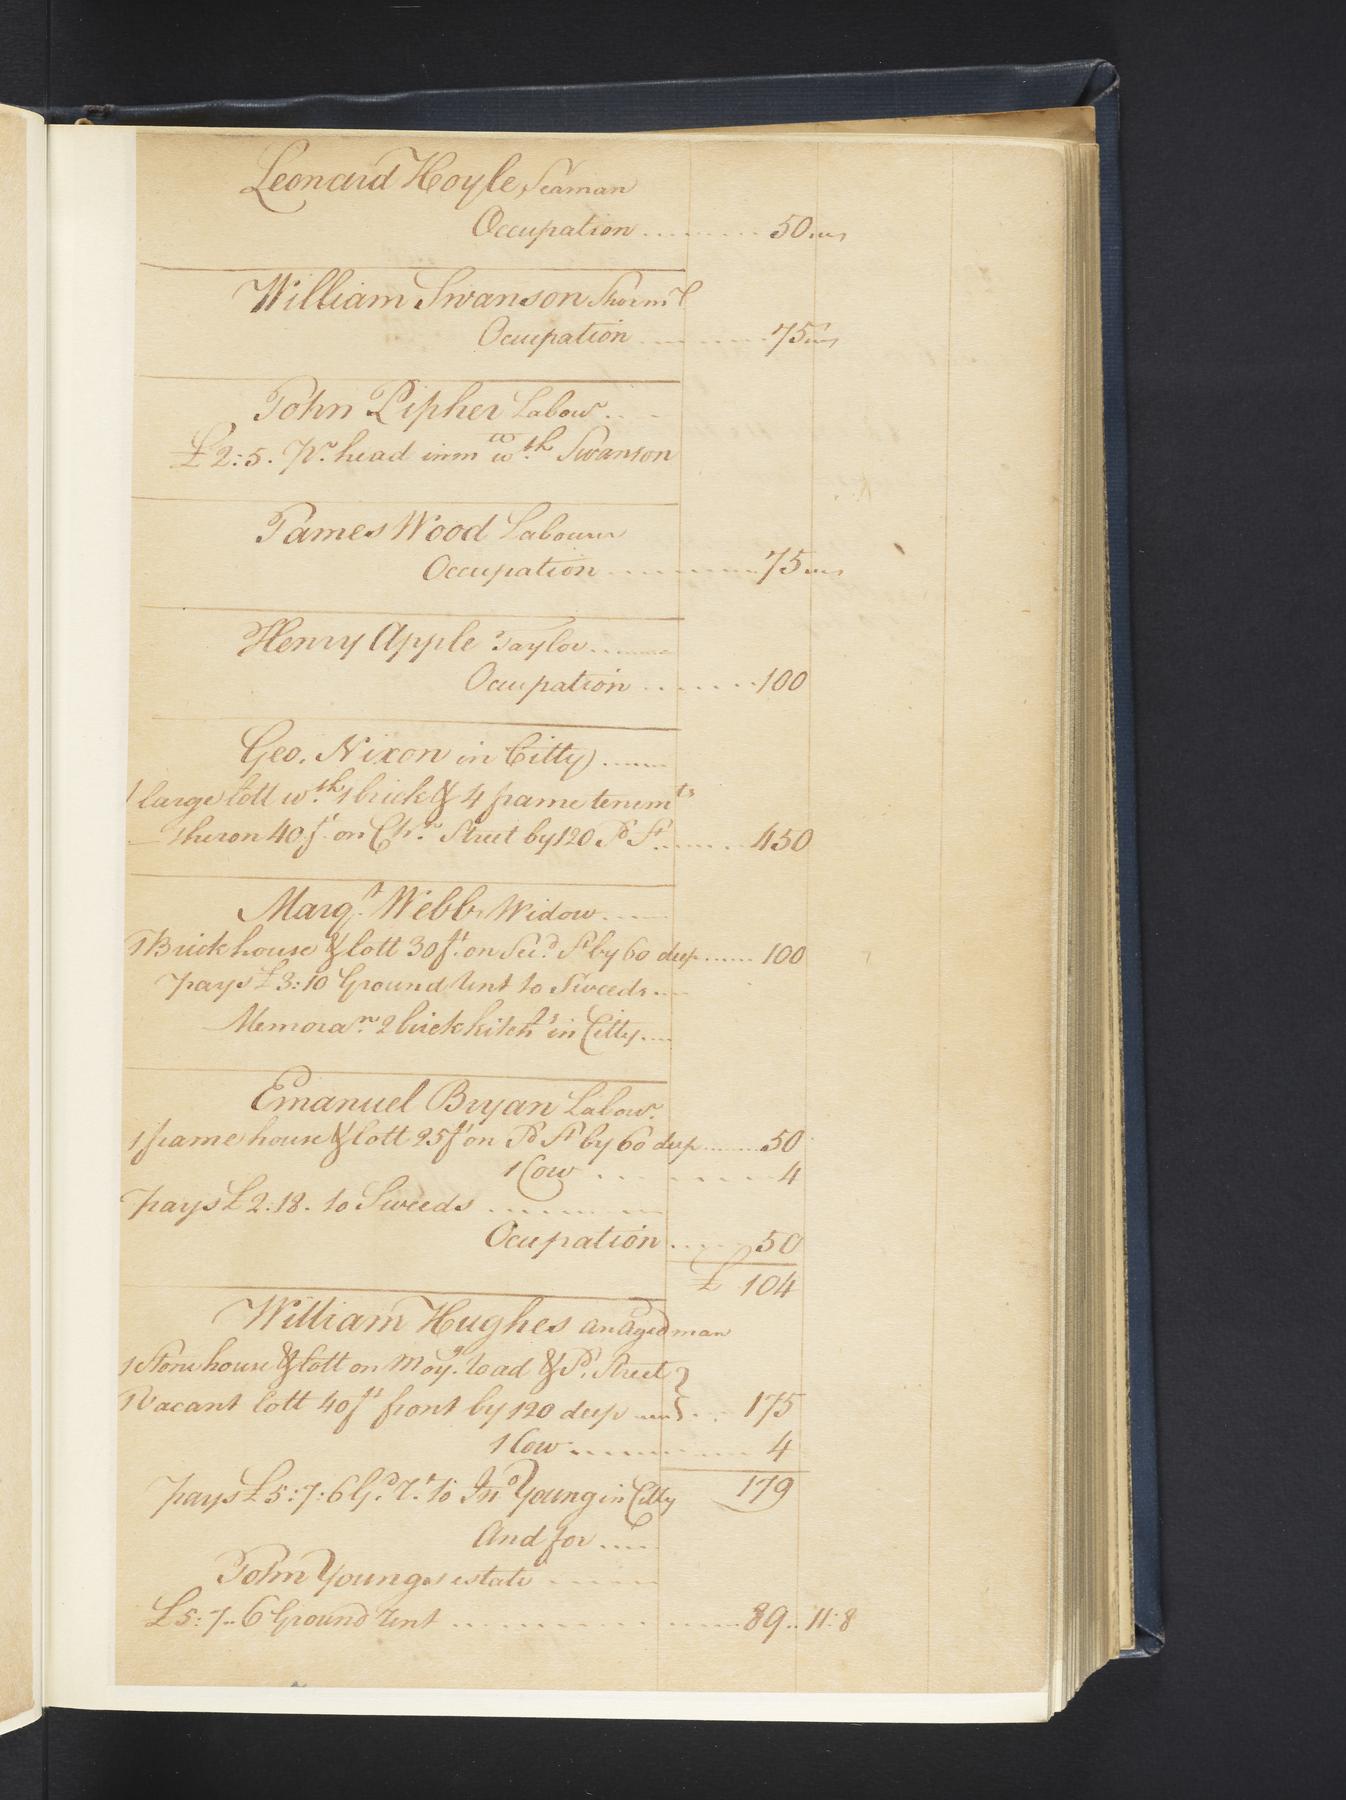 Leonard Hoyle Seaman
Occupation ......... 50
William Swanson Shoem.r
Occupation ......... 75
John Pipher Labour ...
£ 2:5. Pr. head inm w.th Swanson
James Wood Labourer
Occupation ......... 75
Henry Apple Taylor ......
Occupation ....... 100
Geo. Nixon in Citty ......
1 large lott w.th 1 brick & 4 frame tenem.ts
theron 40 f.t on Ch.n Street by 120 P.d S.t ...... 450
Marg.t Webb Widow .....
1 Brick house & lott 30 f.t on Sec.d S.t by 60 deep ...... 100
pays £ 3:10 Ground Rent to Sweeds ....
Memora.m 2 brick kitch.s in Citty ....
Emanuel Bryan Labour.
1 frame house & lott 25 f.t on P.d S.t by 60 deep ...... 50
1 Cow ....... 4
pays £ 2:18. to Sweeds ......
Occupation ..... 50
£ 104
William Hughes an aged man
1 Stone house & lott on Moy.g Road & P.d Street }
1 Vacant lott 40 f.t front by 120 deep ..... } .. 175
1 Cow ......... 4
pays £ 5:7:6 G.d R.t to Jn.o Young in Citty 179
And for ....
John Youngs estate .....
£ 5:7..6 Ground Rent ......... 89.. 11:8